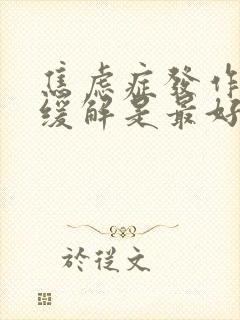 焦虑症發作
缓解是最好
於從文